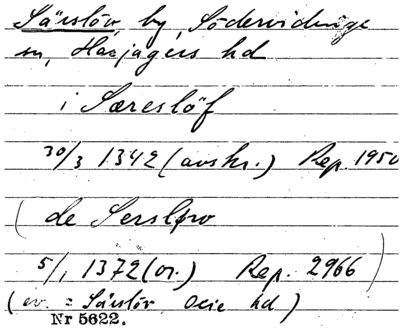 Särslöv, by, Södervidinge
sn, Harjagers hd
i Særeslöf
30/3 1342 (avskr.) Rep. 1950
(de Sersløvo
5/1 1372 (or.) Rep. 2966)
(ev. = Särslöv Oxie hd)
Nr 5622.